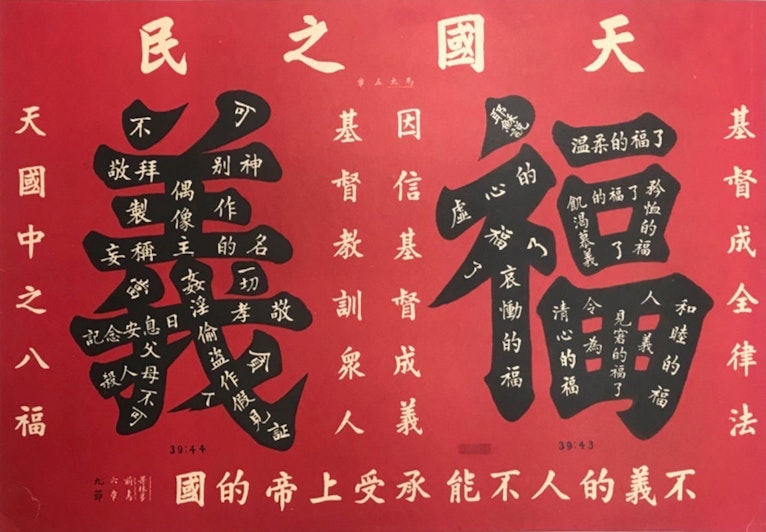 天國之民
馬太五章
基督成全律法
耶穌說
虛心的福了
哀慟的福
溫柔的福了
飢渴慕義的福了
矜恤的福了
清心的福
和睦的福
令為義人見窘的福了
39:43
因信基督成義
基督教訓眾人
不可
敬拜別神
製作偶像
妄稱主的名
當記念安息日
孝敬父母
不可殺人
姦淫偷盜作假見証
貪一切
39:44
天國中之八福
不義的人不能承受上帝的國
哥林多前書六章九節